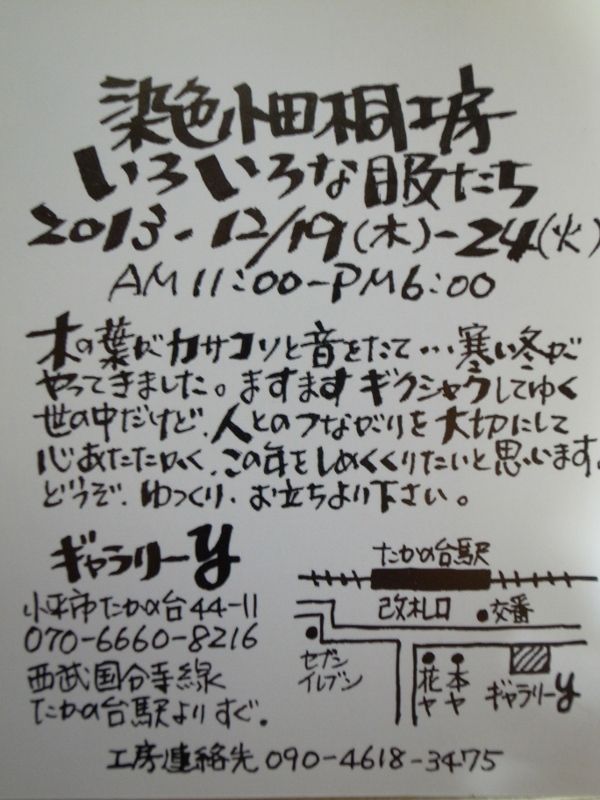 染色畑桐工房
いろいろな服たち
2013.12/19(木)-24(火)
AM11:00-PM6:00
木の葉がカサコソと音をたて…寒い冬が
やってきました。ますますギクシャクしてゆく
世の中だけど、人とのつながりを大切にして
心あたたかく、この年をしめくくりたいと思います。
どうぞ、ゆっくり、お立ちより下さい。
ギャラリーy
小平市たかの台44-11
070-6660-8216
西武国分寺線
たかの台駅よりすぐ。
たかの台駅
改札口
交番
セブン
イレブン
花ヤ
本ヤ
ギャラリーy
工房連絡先 090-4618-3475